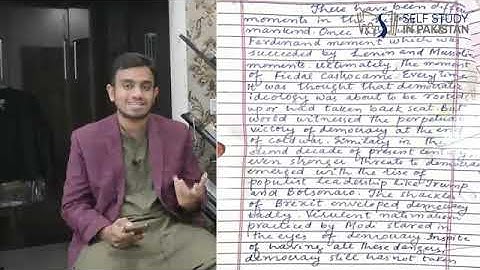 There have been differ
moments in the
mankind. Once
Ferdinand moment which was
succeeded by Lenin and Mussolin
moments ultimately, the moment
of Fiedal Cashocame. Every time
It was thought that democratic
ideology was about to be rooted
up or had taken back seat. But
world witnessed the perpetual
victory of democracy at the en
of cold war. Similarly in the
second decade of present century
even stronger threats to democrac
emerged with the rise of
populist leadership like Trump
and Bolsonaro. The shackles
of Brexit enveloped democracy
badly. Virulent nationalism
practiced by Modi stared in
the eyes of democracy. Inspite
of having all these dangers,
democracy still has not taken
SELF STUDY
IN PAKISTAN